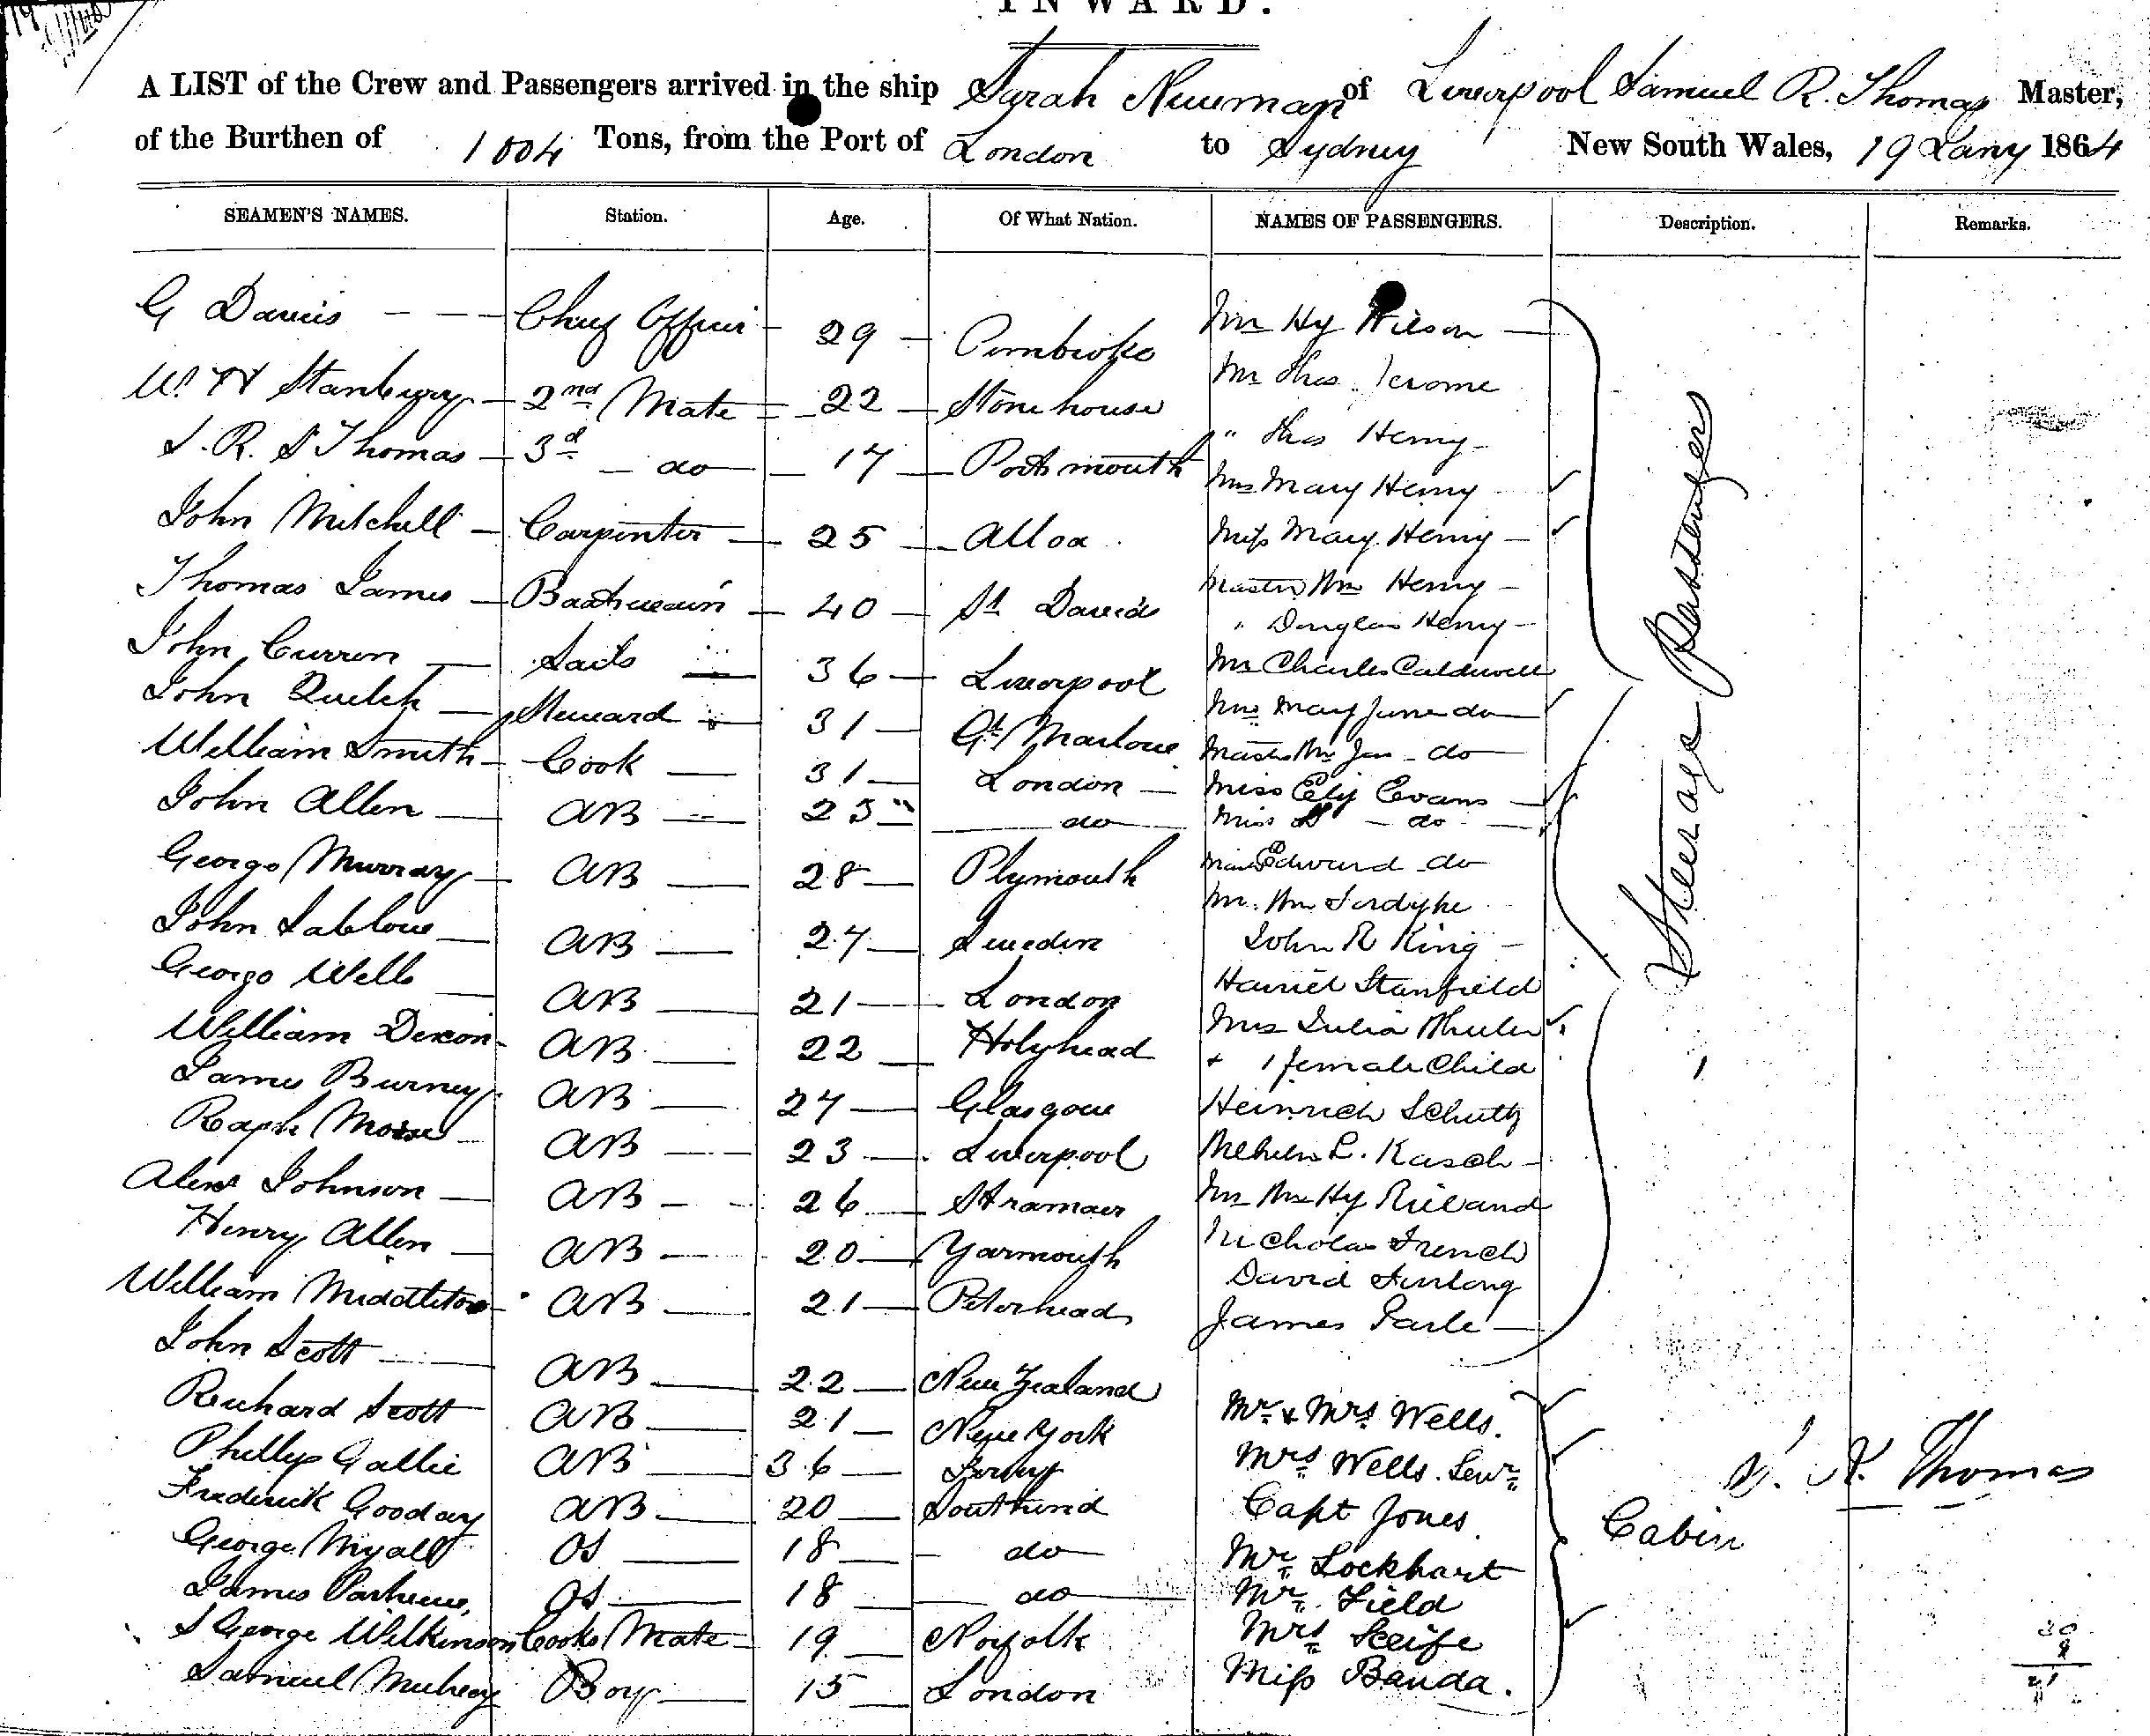 INWARD.
A LIST of the Crew and Passengers arrived in the ship Sarah Newman of Liverpool Samuel R. Thomas Master,
of the Burthen of 1004 Tons, from the Port of London to Sydney New South Wales, 19 Jany 1864
SEAMEN'S NAMES. Station. Age. Of What Nation. NAMES OF PASSENGERS. Description. Remarks.
G Davies Chief Officer 29 Pembroke Mr Hy Wilson
W. H Stanbury 2nd Mate 22 Stonehouse Mr Thos Jerome
S. R. S Thomas 3d do 17 Portsmouth " Thos Henry
John Mitchell Carpenter 25 Alloa Mrs Mary Henry
Miss Mary Henry
Thomas James Boatswain 40 St Davids Master Wm Henry
" Douglas Henry
John Curren Sails 36 Liverpool Mr Charles Caldwell
John Quelch Steward 31 Gt Marlow Mrs Mary Jane do
William Smith Cook 31 London Master Wm Jas do
Miss Eliz Evans
John Allen AB 23 do Miss do
George Murray AB 28 Plymouth Edward do
Mr. Wm
John AB 27 Sweden John R King
George Wells AB 21 London Harriet Stanfield
William Dixon AB 22 Holyhead Mrs Julia Wheeler
+ 1 female Child
James Burney AB 27 Glasgow Heinrich Schultz
Raph Morse AB 23 Liverpool L. Kasch
Alexr Johnson AB 26 Mr Wm Hy
Henry Allen AB 20 Yarmouth Nicholas French
David Furlong
William Middleton AB 21 Peterhead James Earle
Steerage Passengers
John Scott AB 22 New Zealand
Richard Scott AB 21 New York Mr & Mrs Wells.
Phillip Gallie AB 36 Jersey Mrs Wells. Senr
Frederick Gooday AB 20 Southend Capt Jones.
George Myall OS 18 do Mr Lockhart
James OS 18 do Mr Field
S George Wilkinson Cooks Mate 19 Norfolk Mrs
Samuel Boy 15 London Miss Banda.
Cabin
S. R. Thomas